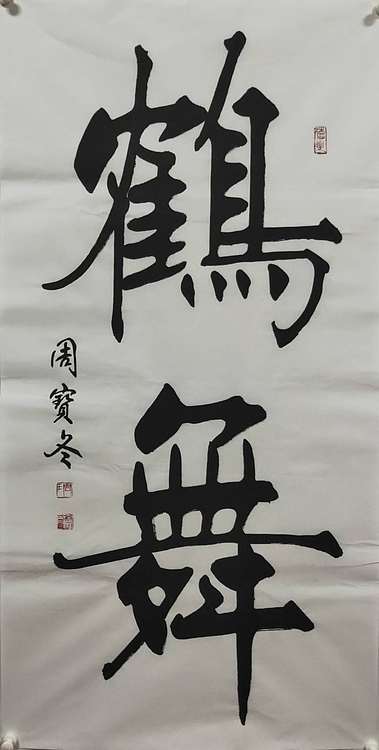 鶴舞
周寶冬